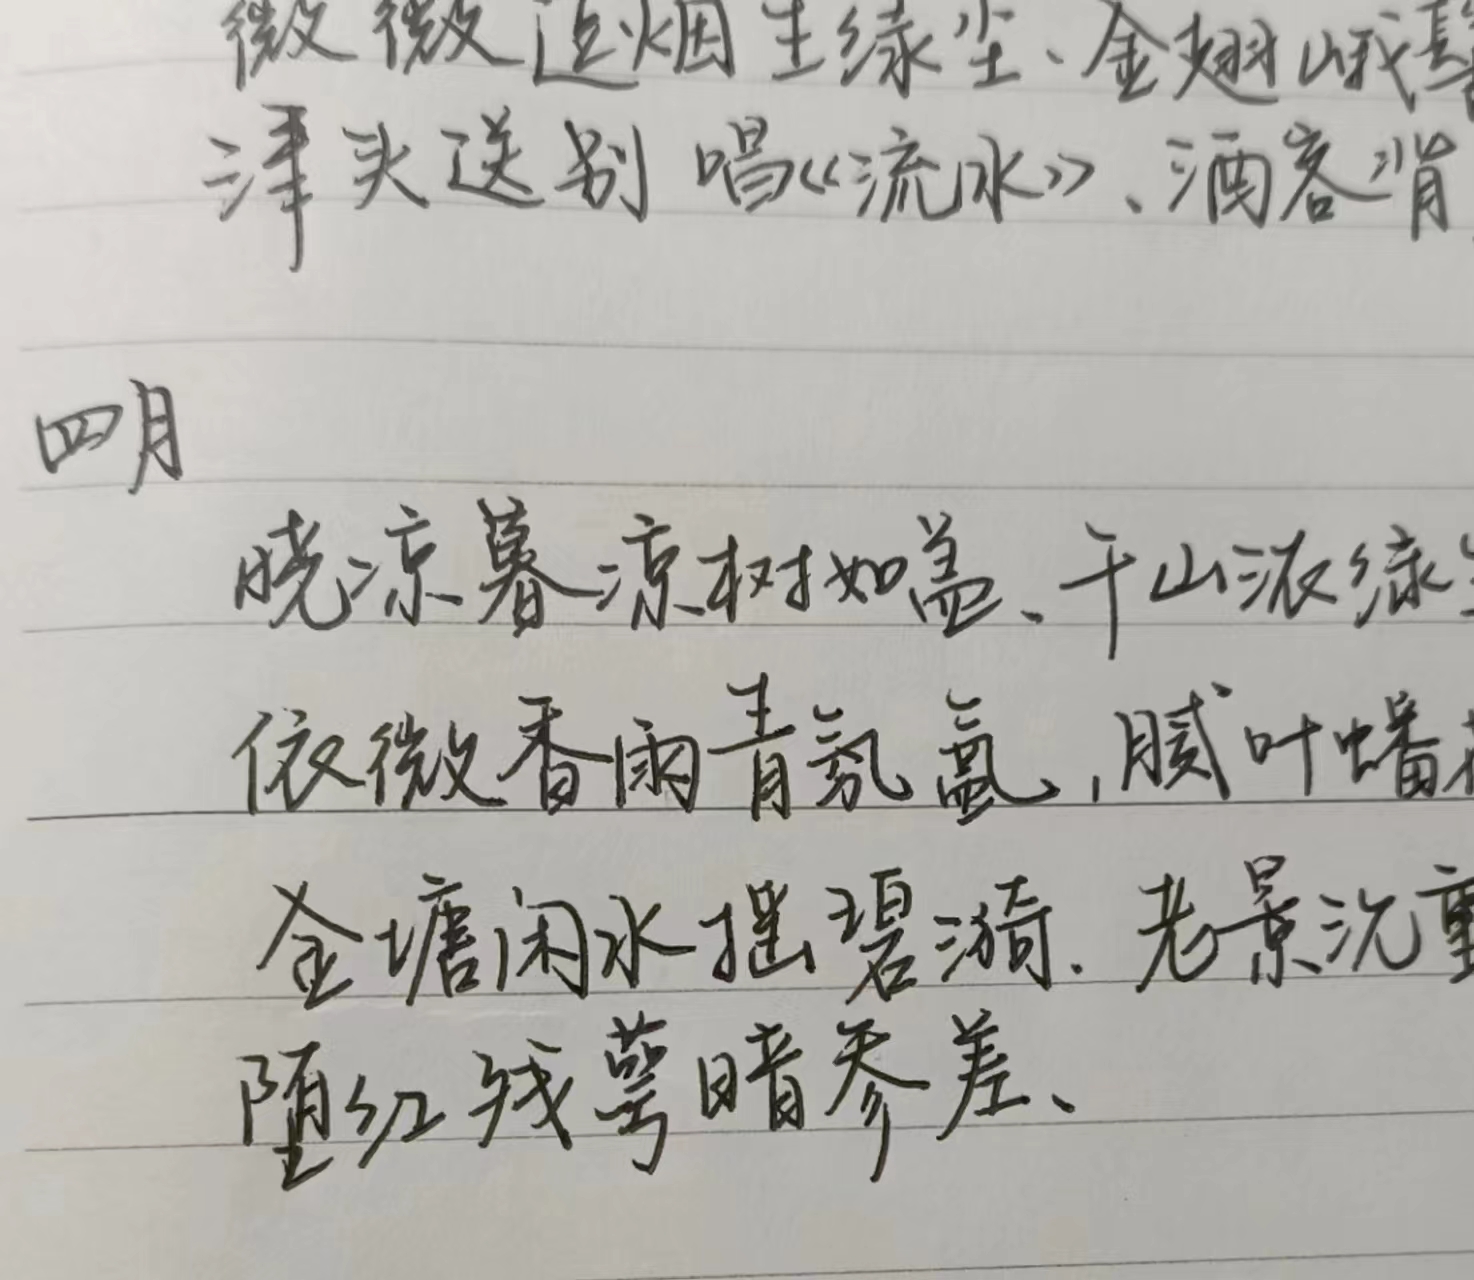 微微𬨎烟生绿尘、金翅峨髻
津头送别唱《流水》、酒客背
四月
晓凉暮凉树如盖、千山浓绿生
依微香雨青氛氲,腻叶蟠花
金塘闲水摇碧漪.老景沉重
堕红残萼暗参差、